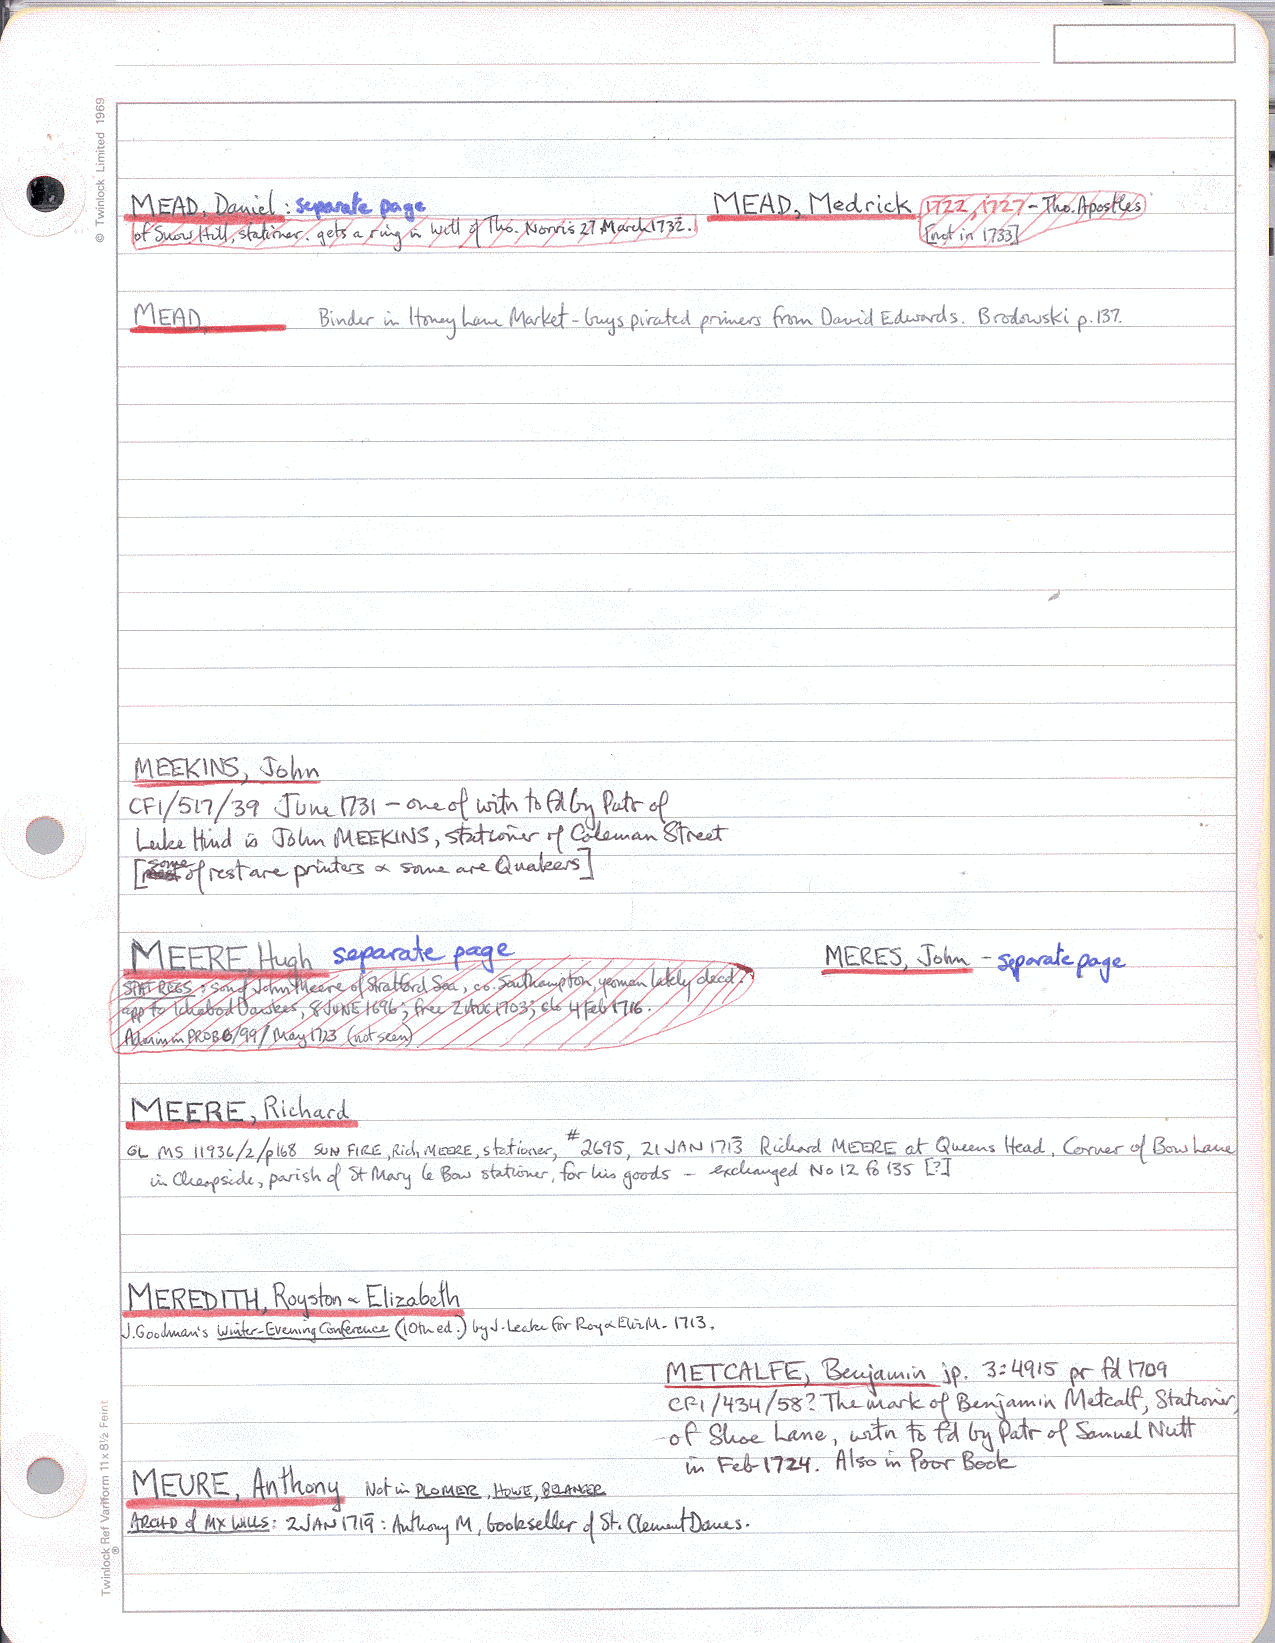 © Twinlock Limited 1969
MEAD, Daniel : separate page
of Snow Hill, stationer. gets a ring in will of Tho. Norris 27 March 1732.
MEAD, Medrick 1722, 1727 - Tho. Apostles
[not in 1733]
MEAD, Binder in Honey Lane Market - buys pirated primers from David Edwards. Brodowski p.137.
MEEKINS, John
CF1/517/39 June 1731 - one of witn to fd by Patr of
Luke Hind is John MEEKINS, stationer of Coleman Street
[some of rest are printers & some are Quakers]
MEERE, Hugh separate page
STAT REGS: son of John Meere of Stratford Sea, co. Southampton, yeoman lately decd.
app to Ichabod Dawkes, 8 JUNE 1696; free 2 AUG 1703; clo 4 Feb 1716.
Admin in PROB 6/99/ May 1723 (not seen)
MERES, John - separate page
MEERE, Richard
GL MS 11936/2/p168 SUN FIRE, Rich. MEERE, stationer, #2695, 21 JAN 1713 Richard MEERE at Queens Head, Corner of Bow Lane
in Cheapside, parish of St Mary le Bow stationer, for his goods - exchanged No 12 fo 135 [?]
MEREDITH, Royston & Elizabeth
J. Goodman's Winter-Evening Conference (10th ed.) by J. Leake for Roy & Eliz M. 1713.
METCALFE, Benjamin jp. 3:4915 pr fd 1709
CF1/434/58? The mark of Benjamin Metcalf, Stationer,
of Shoe Lane, witn to fd by Patr of Samuel Nutt
in Feb 1724. Also in Poor Book
MEURE, Anthony Not in PLOMER, HOWE, BELANGER
ARCHD of MX WILLS: 2 JAN 1719: Anthony M, bookseller of St. Clement Danes.
Twinlock Ref Variform 11 x 8½ Feint
®